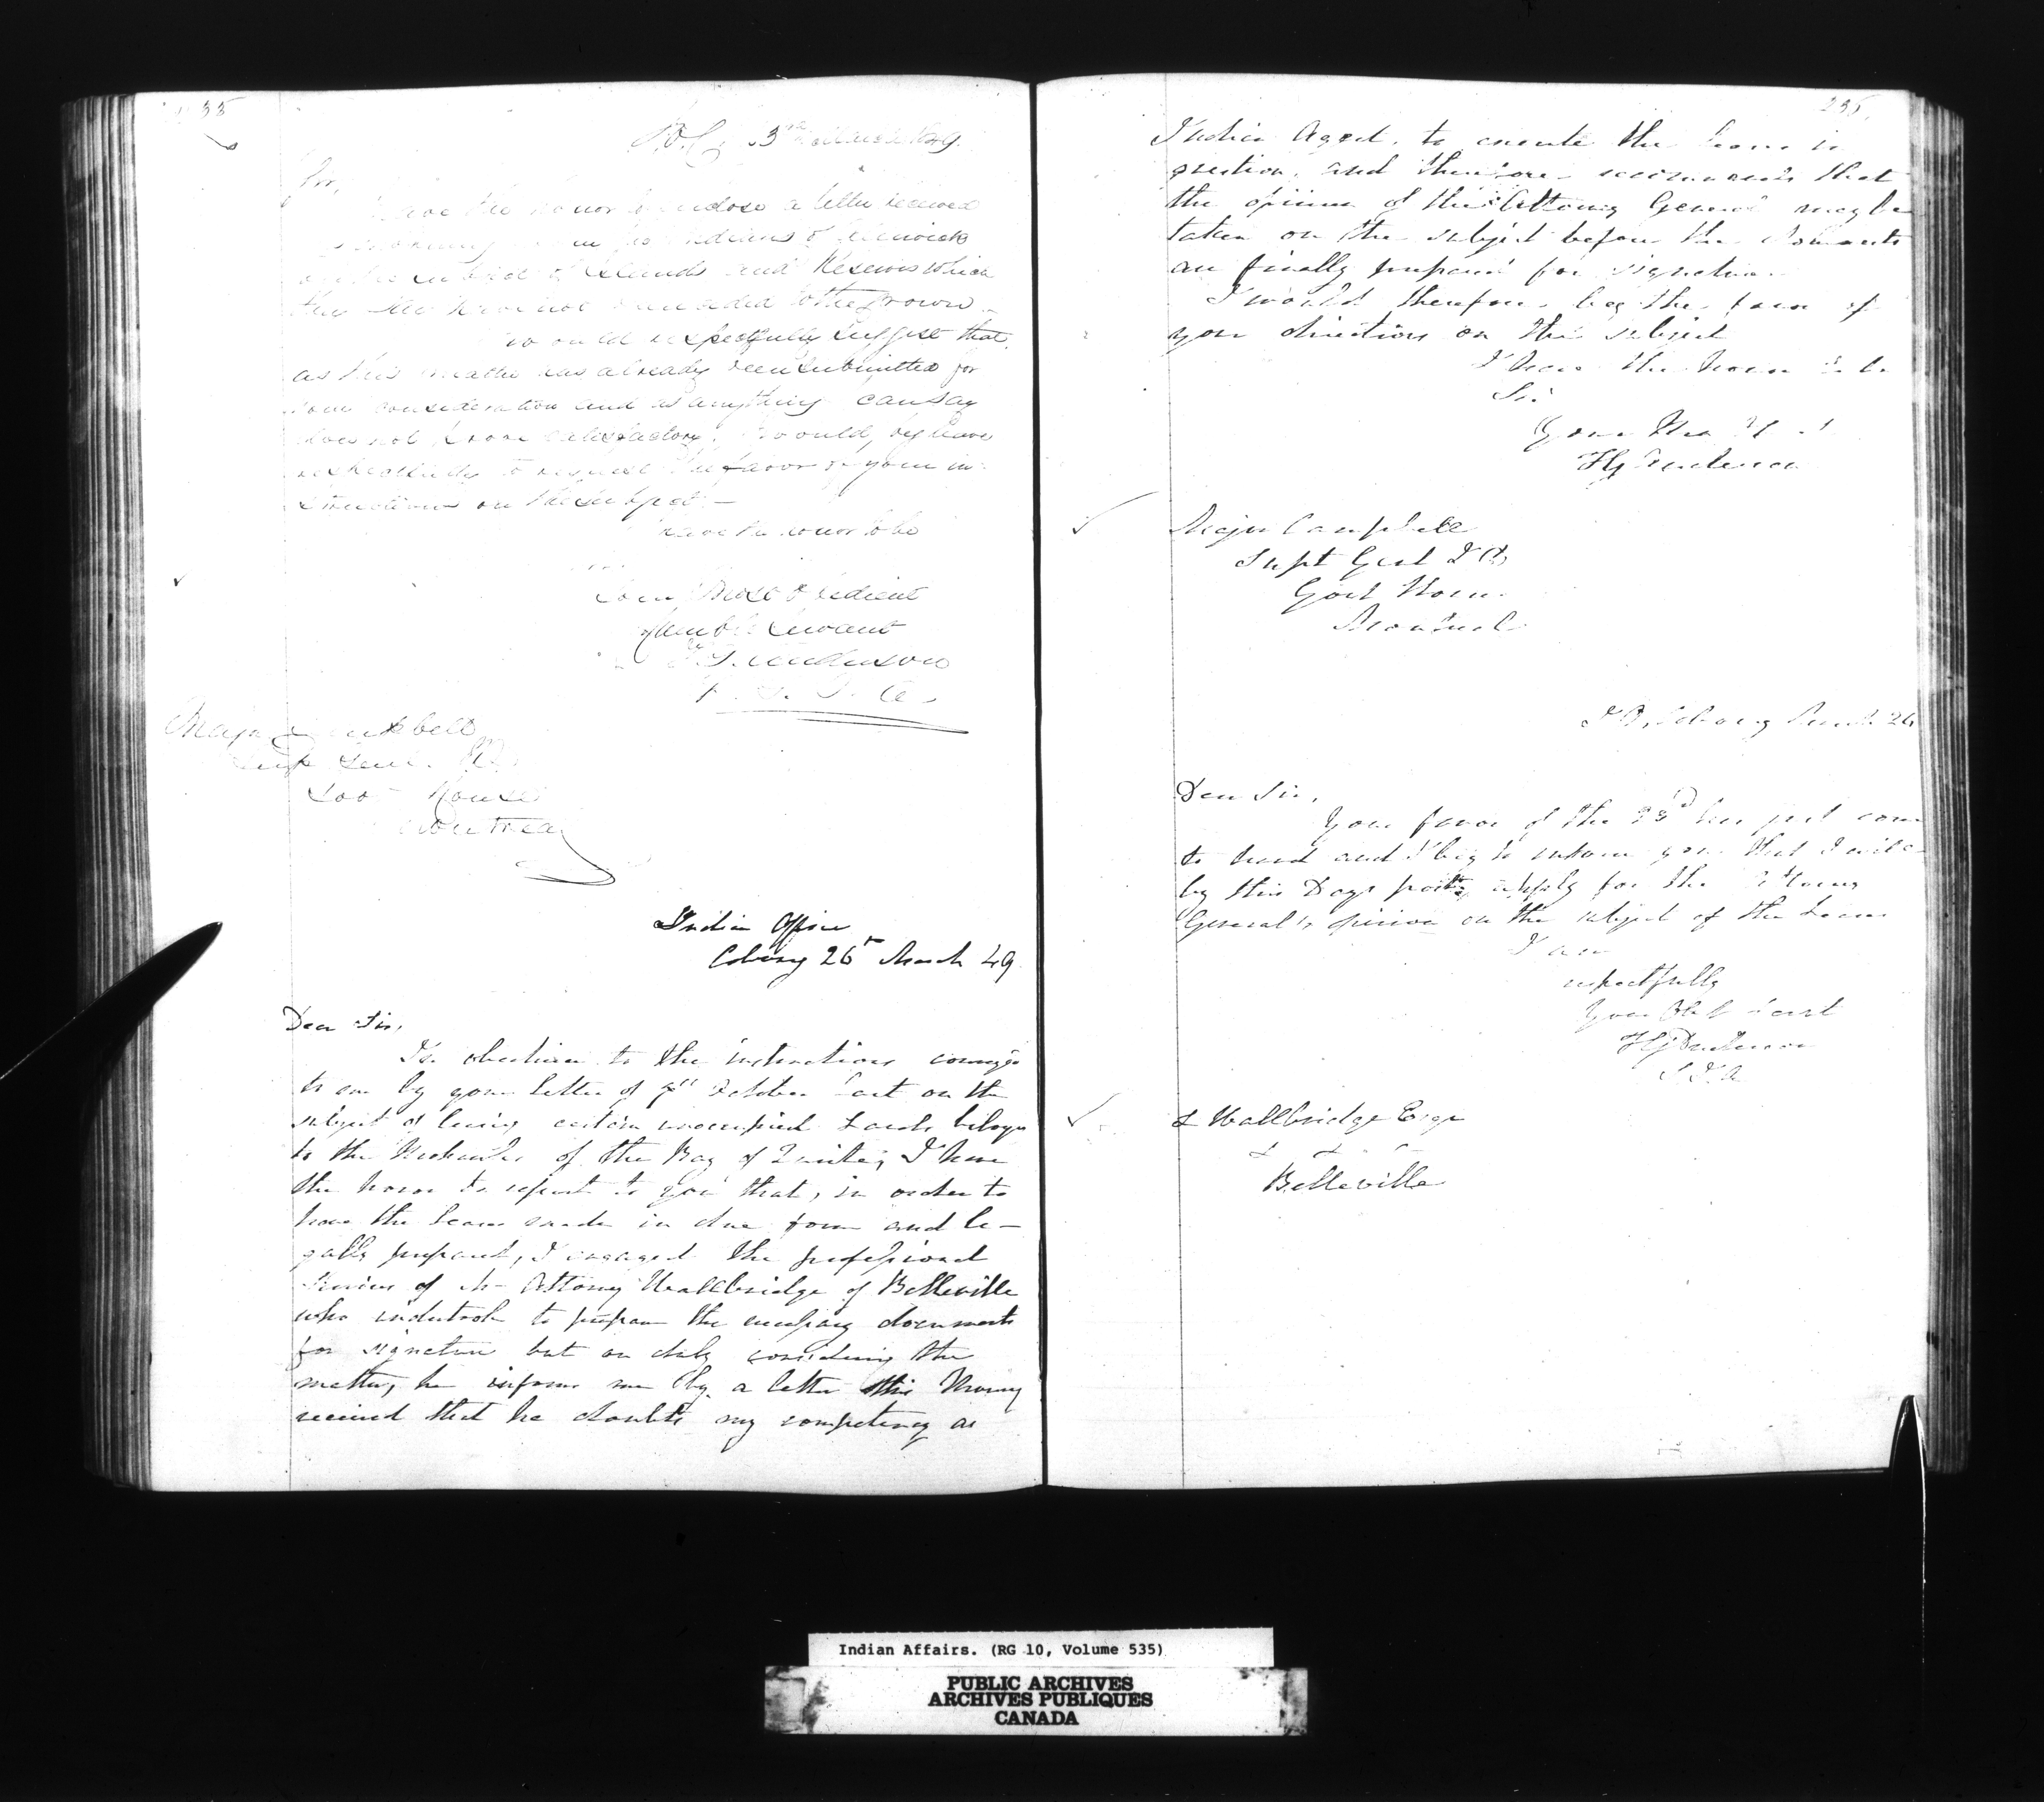 Sir,
have the honor to enclose a letter received
Indians of Alnwick
Islands and Reserves which
not ceded to the Crown
would respectfully suggest that
as this matter has already been submitted for
your consideration and as anything can say
does not prove satisfactory, would beg leave
respectfully to request the favor of your in-
structions on the subject —
have the honor to be
Your Most Obedient
Humble Servant
Major Campbell
Supt Genl.
Govt House
Montreal
Indian Office
Cobourg 26th March 49
Dear Sir,
In obedience to the instructions conveyed
to me by your letter of October last on the
subject of leasing certain unoccupied Lands belongg
to the Mohawks of the Bay of Quinte, I have
the honor to report to you that, in order to
have the Leases made in due form and le-
gally prepared, I engaged the professional
Services of Mr Attorney Wallbridge of Belleville
who undertook to prepare the necessary documents
for signature but on duly considering the
matter, he informs me by a letter this Morning
received that he doubts my competency as
235
Indian Agent, to execute the leases in
question, and therefore recommends that
the opinion of the Attorney General may be
taken on the subject before the documents
are finally prepared for signature.
I would therefore beg the favor of
your directions on this subject
I have the honor to be
Sir
Major Campbell
Supt Genl I A
Govt House
Montreal
I. O. Cobourg March 26
Dear Sir,
Your favor of the 23d has just come
to hand and I beg to inform you that I will
by this Days post apply for the Attorney
General's opinion on the subject of the Leases
I am
respectfully
Your Obt Servt
S I A
L Wallbridge Esqr
Belleville
Indian Affairs. (RG 10, Volume 535)
PUBLIC ARCHIVES
ARCHIVES PUBLIQUES
CANADA